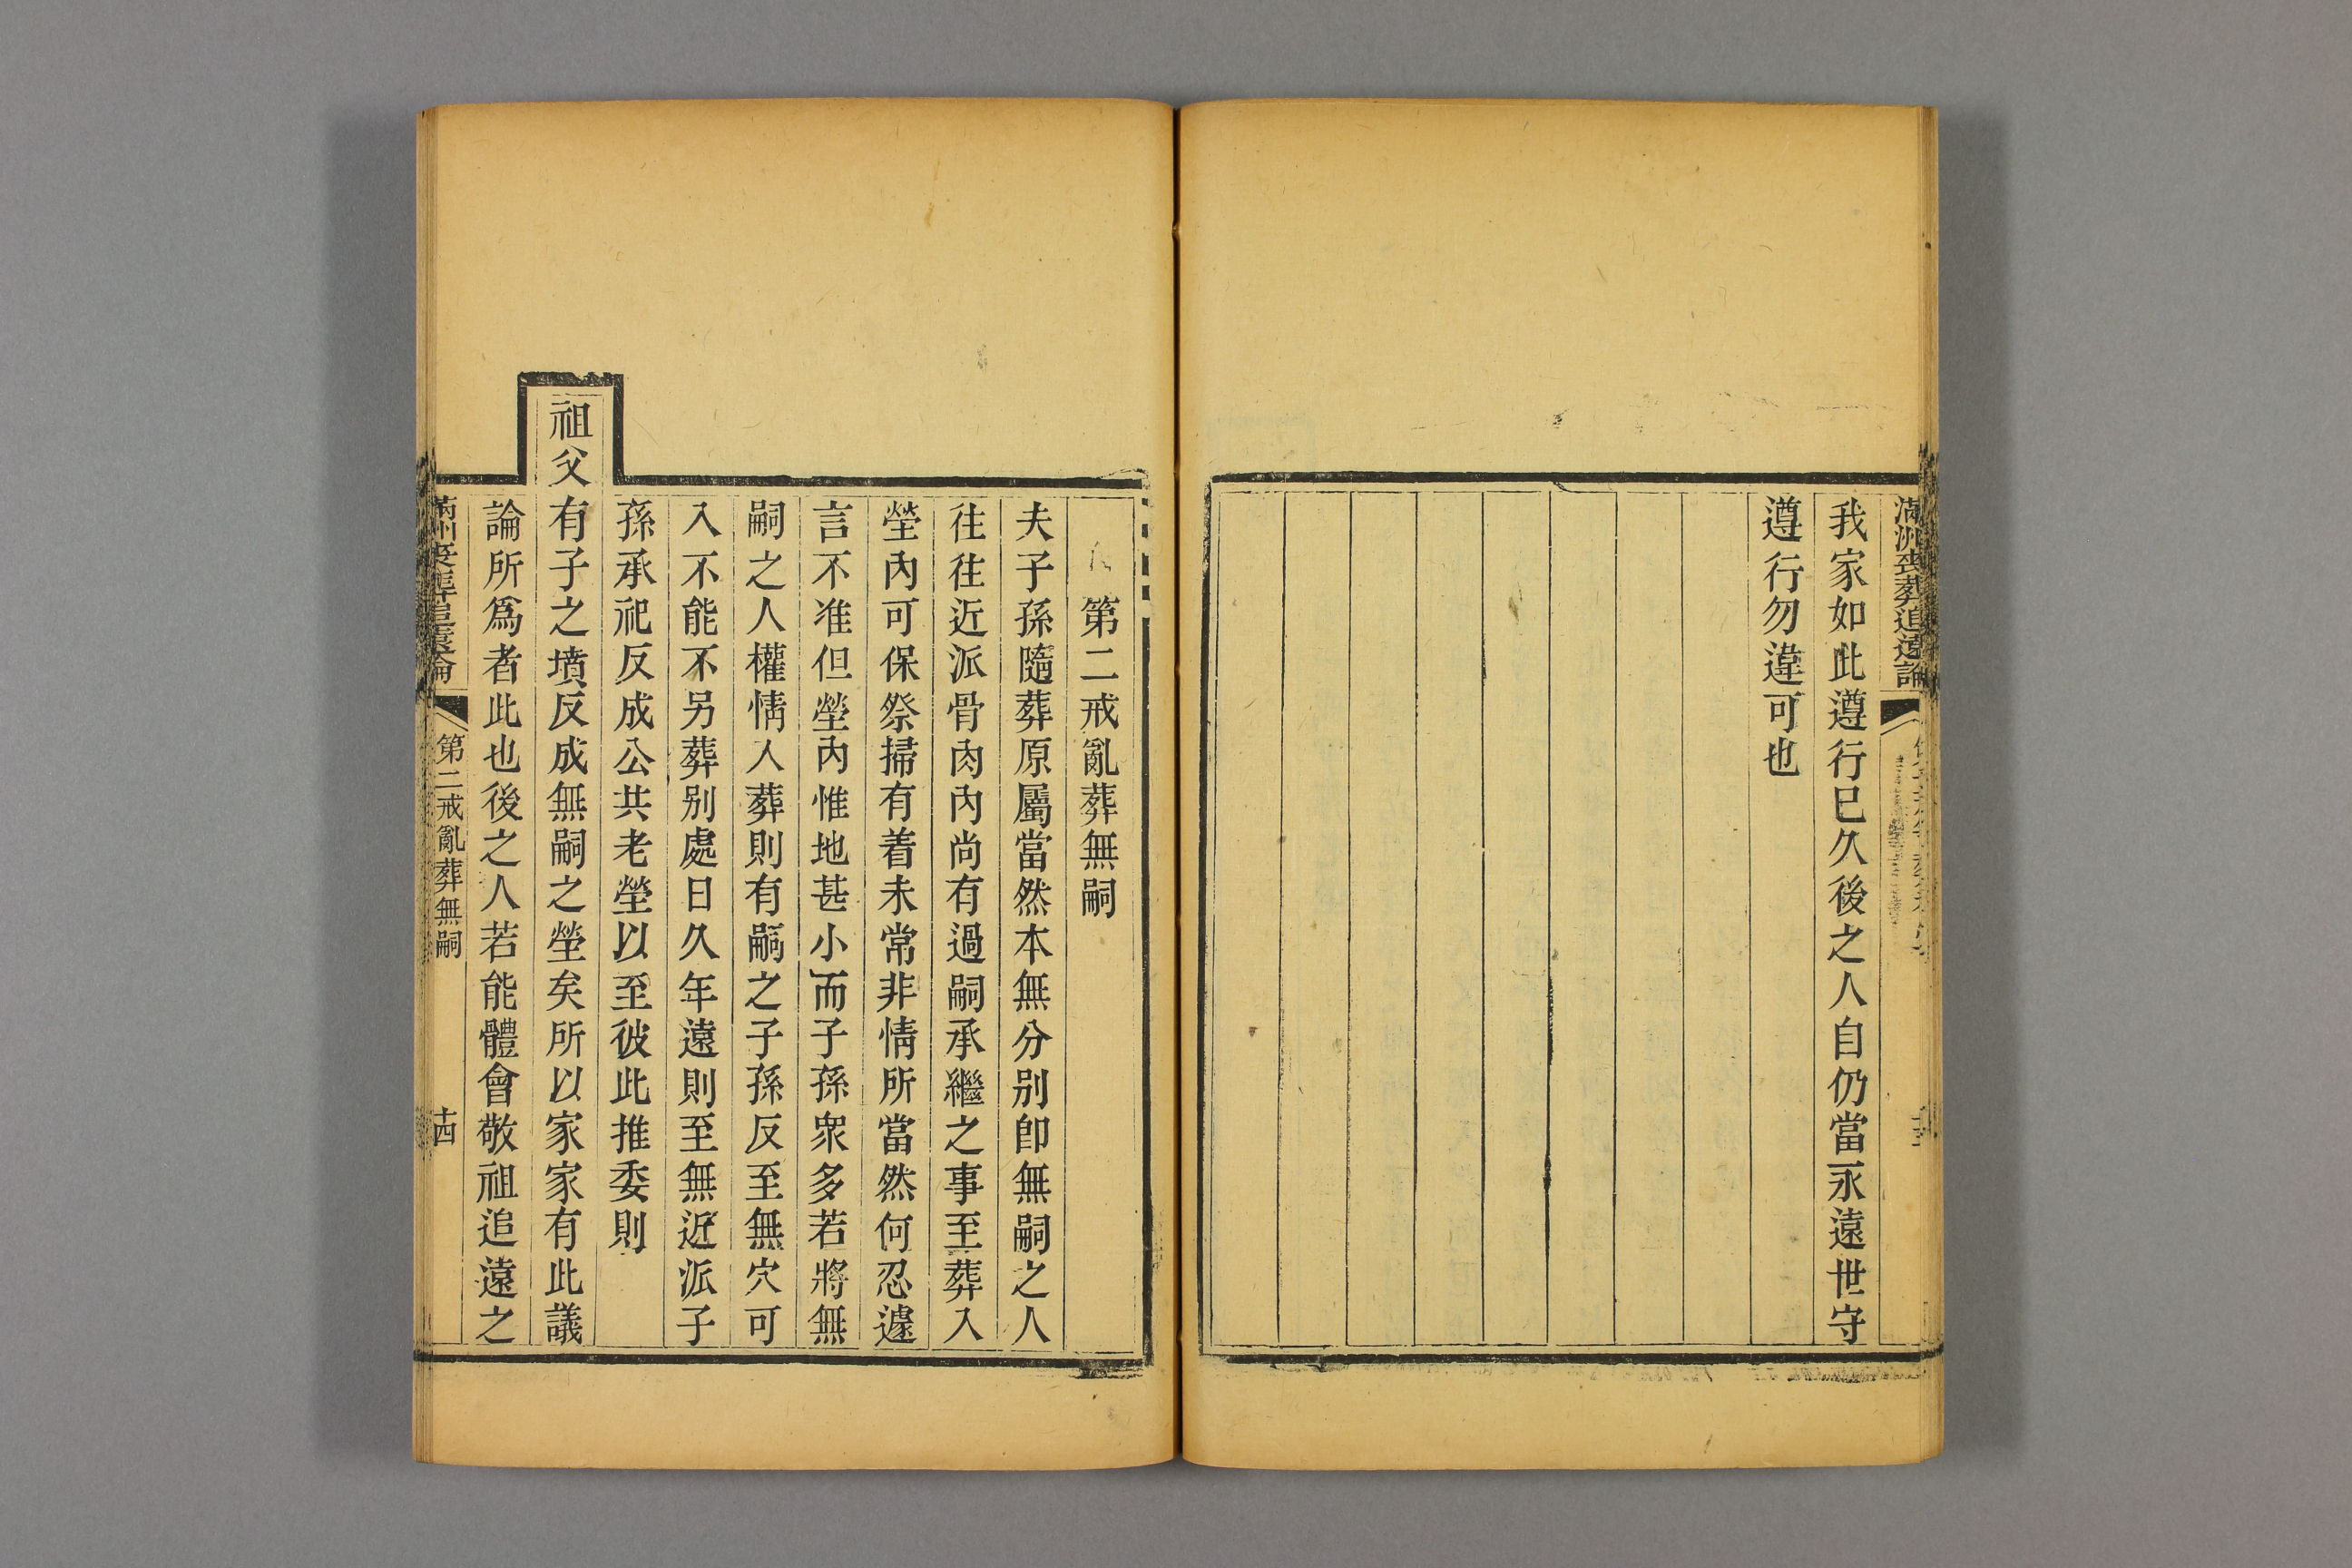 滿洲喪葬追遠論
我家如此遵行已久後之人自仍當永遠世守
遵行勿違可也
第二戒亂葬無嗣
夫子孫隨葬原屬當然本無分别卽無嗣之人
往往近派骨肉內尚有過嗣承繼之事至葬入
塋內可保祭掃有着未常非情所當然何忍遽
言不准但塋內惟地甚小而子孫衆多若將無
嗣之人權情入葬則有嗣之子孫反至無穴可
入不能不另葬别處日久年遠則至無近派子
孫承祀反成公共老塋以至彼此推委則
祖父有子之墳反成無嗣之塋矣所以家家有此議
論所爲者此也後之人若能體會敬祖追遠之
滿洲喪葬追遠論
第二戒亂葬無嗣
十四